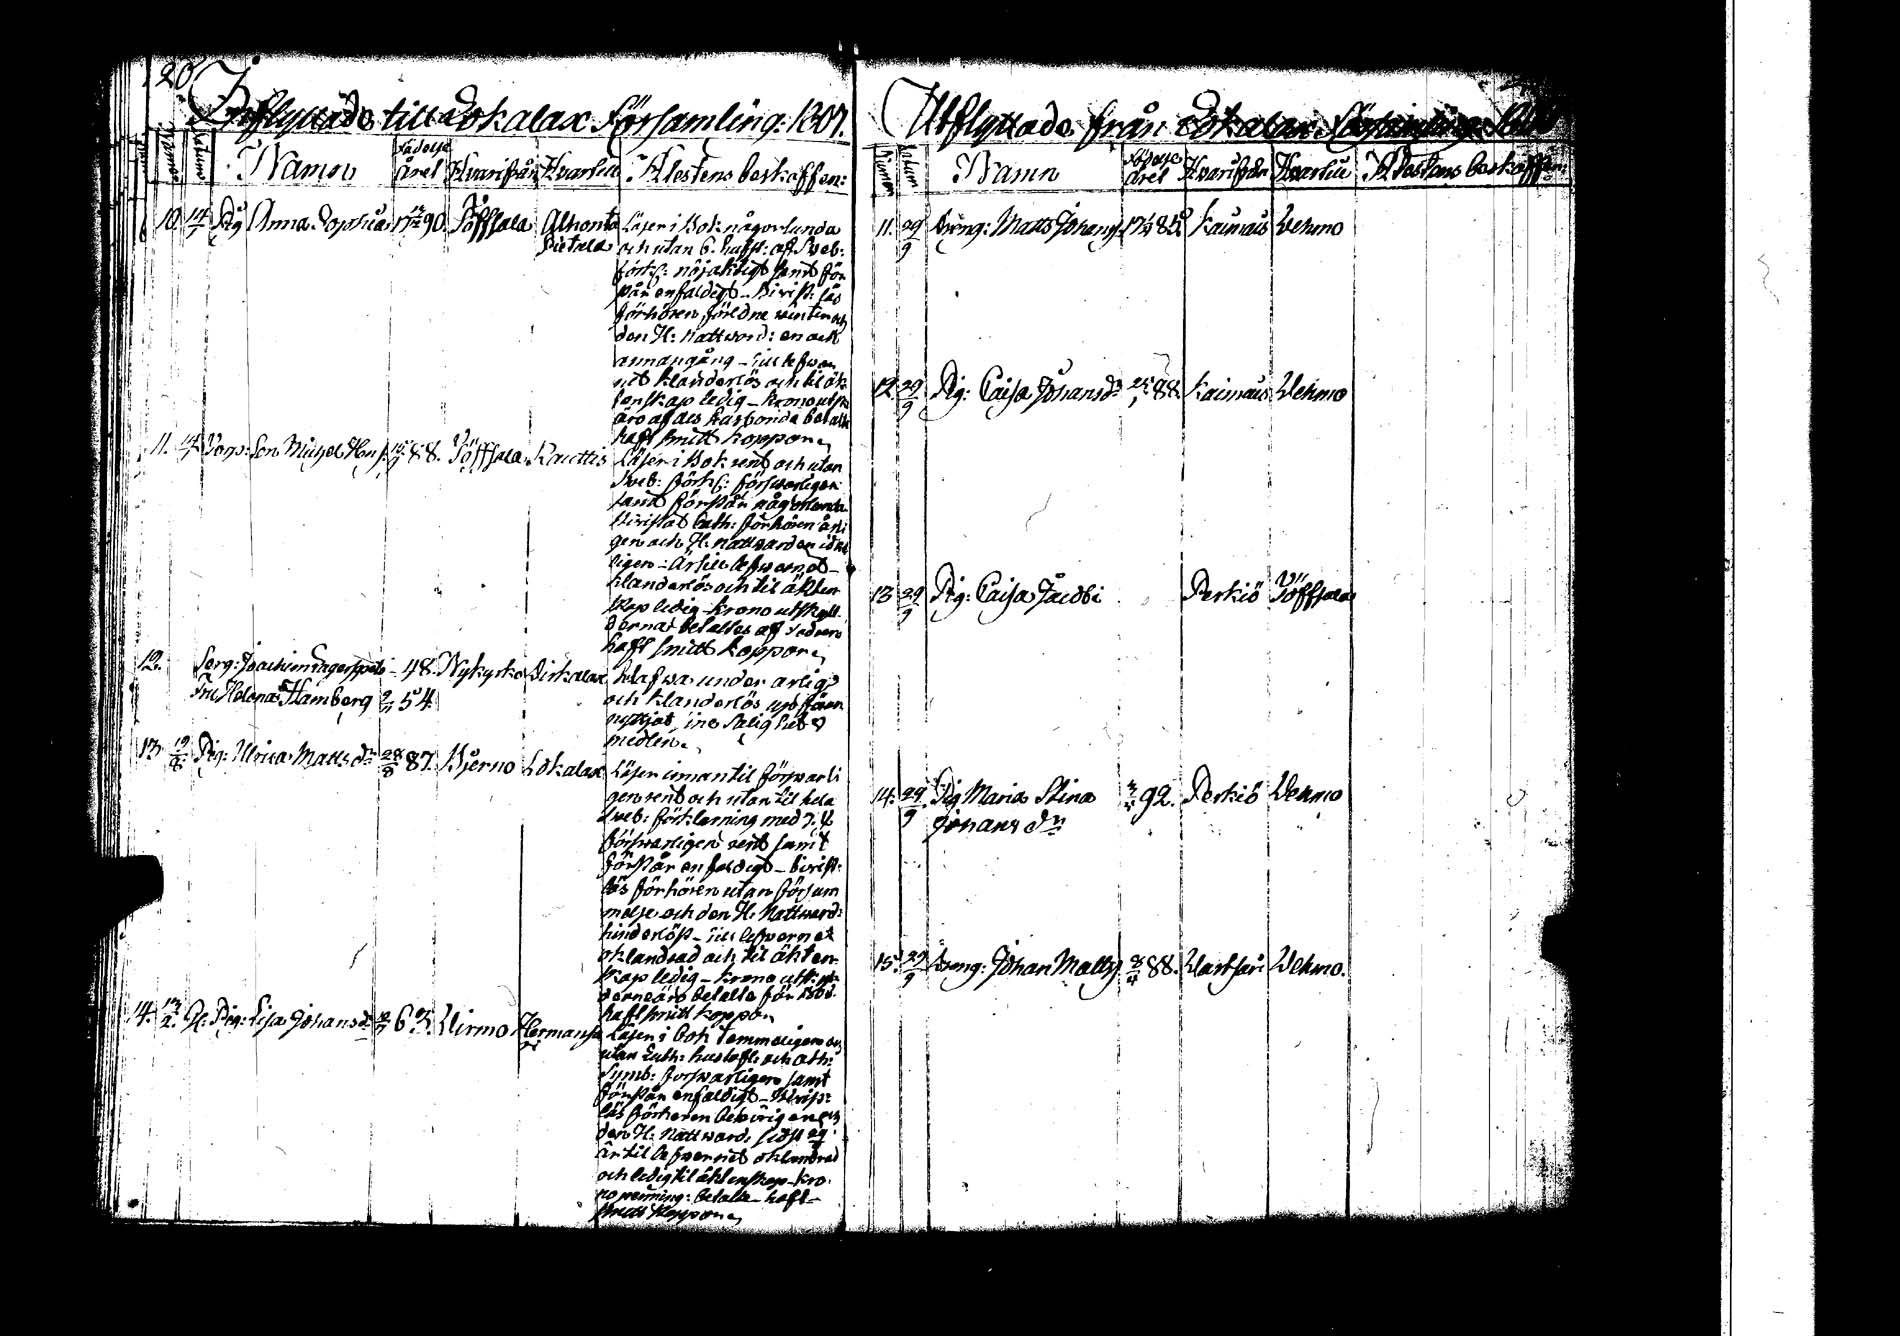 20
Inflyttade till Lokalax Församling: 1807.
Numer Datum Namn Födelse året Hvarifrån Hvartill Attestens beskaffen:
10. 14/7 Pig Anna Sophia 17 90. Töffsala Alhonto Pietala
Läser i Bok någorlunda
och utan 6. hufst: aft Sveb:
förkl: nöjaktigt samt för
står enfaldigt - Bivist: läs
förhören förledne vinter och
den H: Nattvard: en och
annan gång - Till lefver
net klanderlös och til äk
tenskap ledig - Kronoutsk
äro af des husbonda betalte
haft smitt koppor
11. 14/7 Torp: Son Michel Hans s. 88. Töffsala Kauttis
Läser i Bok rent och utan
Sveb: förkl: försvarligen
samt förstår någorlunda
Bivistat Cath: förhören årli
gen och H: Nattvarden
ligen - Är till lefvernet
klanderlös och til äkten
skap ledig - Krono utskyl
derna betaltes af
haft smitt koppor
12. Serg: Joachim Lagersped - 48. Nykyrko Birkalax
Fru Helena Hamberg 54
Hafva under ärligt
och klanderlös upföran
nyttjat sine Salighets
medlen.
13. 19/8 Pig: Ulrica Matts dr 28/8 87. Bjerno Lokalax
Läser innantil försvarli
gen rent och utan til hela
Sveb: förklarning med
försvarligen rent samt
förstår enfaldigt - bivist:
läs förhören utan försum
melse och den H: Nattvard:
hinderlöst - Till lefvernet
oklandrad och til äkten
skap ledig - Krono utskyl
derne äro betalte för 1806.
haft smitt koppor
14. 13/2. Gl: Pig: Lisa Johans dr 63. Virmo Hermansa
Läser i Bok temmeligen och
utan Luth: hustafl: och Ath:
Symb: försvarligen samt
förstår enfaldigt - Bivist:
läs förhören behörigen och
den H: Nattvard: sidst 29
är til lefvernet oklandrad
och ledig til äktenskap - Kro
no penning: betalte - haft
smitt koppor
Utflyttade från Lokalax Församling
Numer Datum Namn Födelse året Hvarifrån Hvartill Attestens beskaffen:
11. 29/9 Dreng: Matts Johans s. 17 85 Kaimais Vehmo
12. 29/9 Pig: Caisa Johans dr 88. Kaimais Vehmo
13 29/9 Pig: Caisa Jacobi Perkiö Töffsala
14. 29/9 Pig Maria Stina 92. Perkiö Vehmo
Johans dr
15. 29/9 Dreng: Johan Matts s. 8/4 88. Vartsari Vehmo.